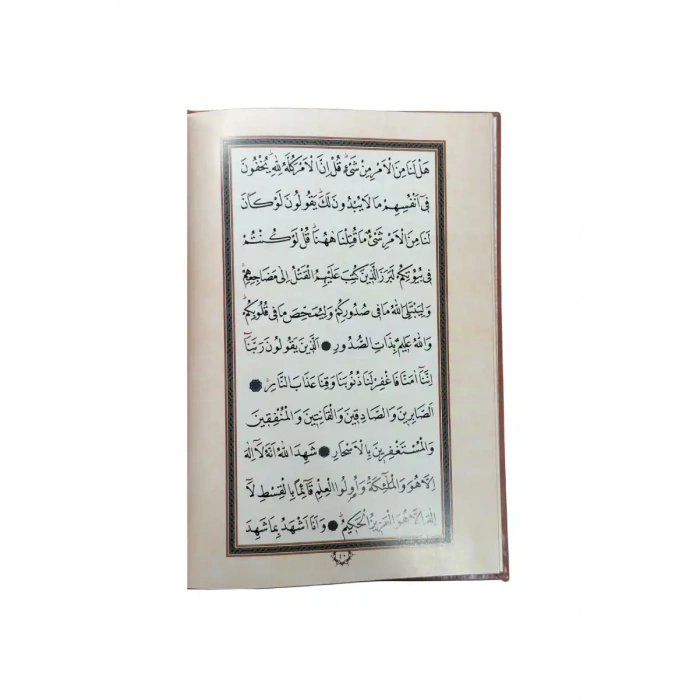 هَلْ لَنَا مِنَ الْاَمْرِ مِنْ شَيْءٍۜ قُلْ اِنَّ الْاَمْرَ كُلَّهُ لِلّٰهِۜ يُخْفُونَ
فٖٓى اَنْفُسِهِمْ مَا لَا يُبْدُونَ لَكَۜ يَقُولُونَ لَوْ كَانَ
لَنَا مِنَ الْاَمْرِ شَيْءٌ مَا قُتِلْنَا هٰهُنَاۜ قُلْ لَوْ كُنْتُمْ
فٖى بُيُوتِكُمْ لَبَرَزَ الَّذٖينَ كُتِبَ عَلَيْهِمُ الْقَتْلُ اِلٰى مَضَاجِعِهِمْۚ
وَلِيَبْتَلِىَ اللّٰهُ مَا فٖى صُدُورِكُمْ وَلِيُمَحِّصَ مَا فٖى قُلُوبِكُمْۜ
وَاللّٰهُ عَلٖيمٌ بِذَاتِ الصُّدُورِ ۝ اَلَّذٖينَ يَقُولُونَ رَبَّنَٓا
اِنَّنَٓا اٰمَنَّا فَاغْفِرْ لَنَا ذُنُوبَنَا وَقِنَا عَذَابَ النَّارِۚ ۝
اَلصَّابِرٖينَ وَالصَّادِقٖينَ وَالْقَانِتٖينَ وَالْمُنْفِقٖينَ
وَالْمُسْتَغْفِرٖينَ بِالْاَسْحَارِ ۝ شَهِدَ اللّٰهُ اَنَّهُ لَٓا اِلٰهَ
اِلَّا هُوَۙ وَالْمَلٰٓئِكَةُ وَاُو۬لُوا الْعِلْمِ قَٓائِمًا بِالْقِسْطِۜ لَٓا
اِلٰهَ اِلَّا هُوَ الْعَزٖيزُ الْحَكٖيمُۜ ۝ وَاَنَا اَشْهَدُ بِمَا شَهِدَ
٤٠